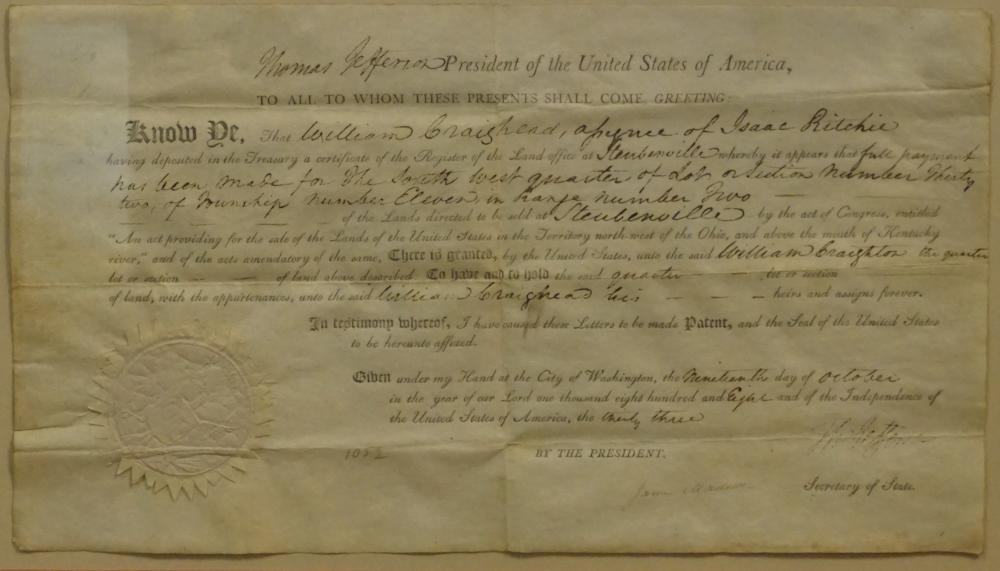 Thomas Jefferson President of the United States of America,
TO ALL TO WHOM THESE PRESENTS SHALL COME, GREETING:
Know Ye, That William Craighead, assignee of Isaac Ritchie
having deposited in the Treasury a certificate of the Register of the Land office at Steubenville whereby it appears that full payment
has been made for The South West quarter of Lot or Section Number Thirty
two, of Township Number Eleven, in Range Number Two —
— of the Lands directed to be sold at Steubenville by the act of Congress, entitled
"An act providing for the sale of the Lands of the United States in the Territory north-west of the Ohio, and above the mouth of Kentucky
river," and of the acts amendatory of the same, There is granted, by the United States, unto the said William Craighton the quarter
lot or section — — of land above described To have and to hold the said quarter — lot or section
of land, with the appurtenances, unto the said William Craighead his — — — heirs and assigns forever.
In testimony whereof, I have caused these Letters to be made Patent, and the Seal of the United States
to be hereunto affixed.
Given under my Hand at the City of Washington, the Nineteenth day of October
in the year of our Lord one thousand eight hundred and Eight and of the Independence of
the United States of America, the thirty three
Th: Jefferson
1052
BY THE PRESIDENT,
James Madison Secretary of State.